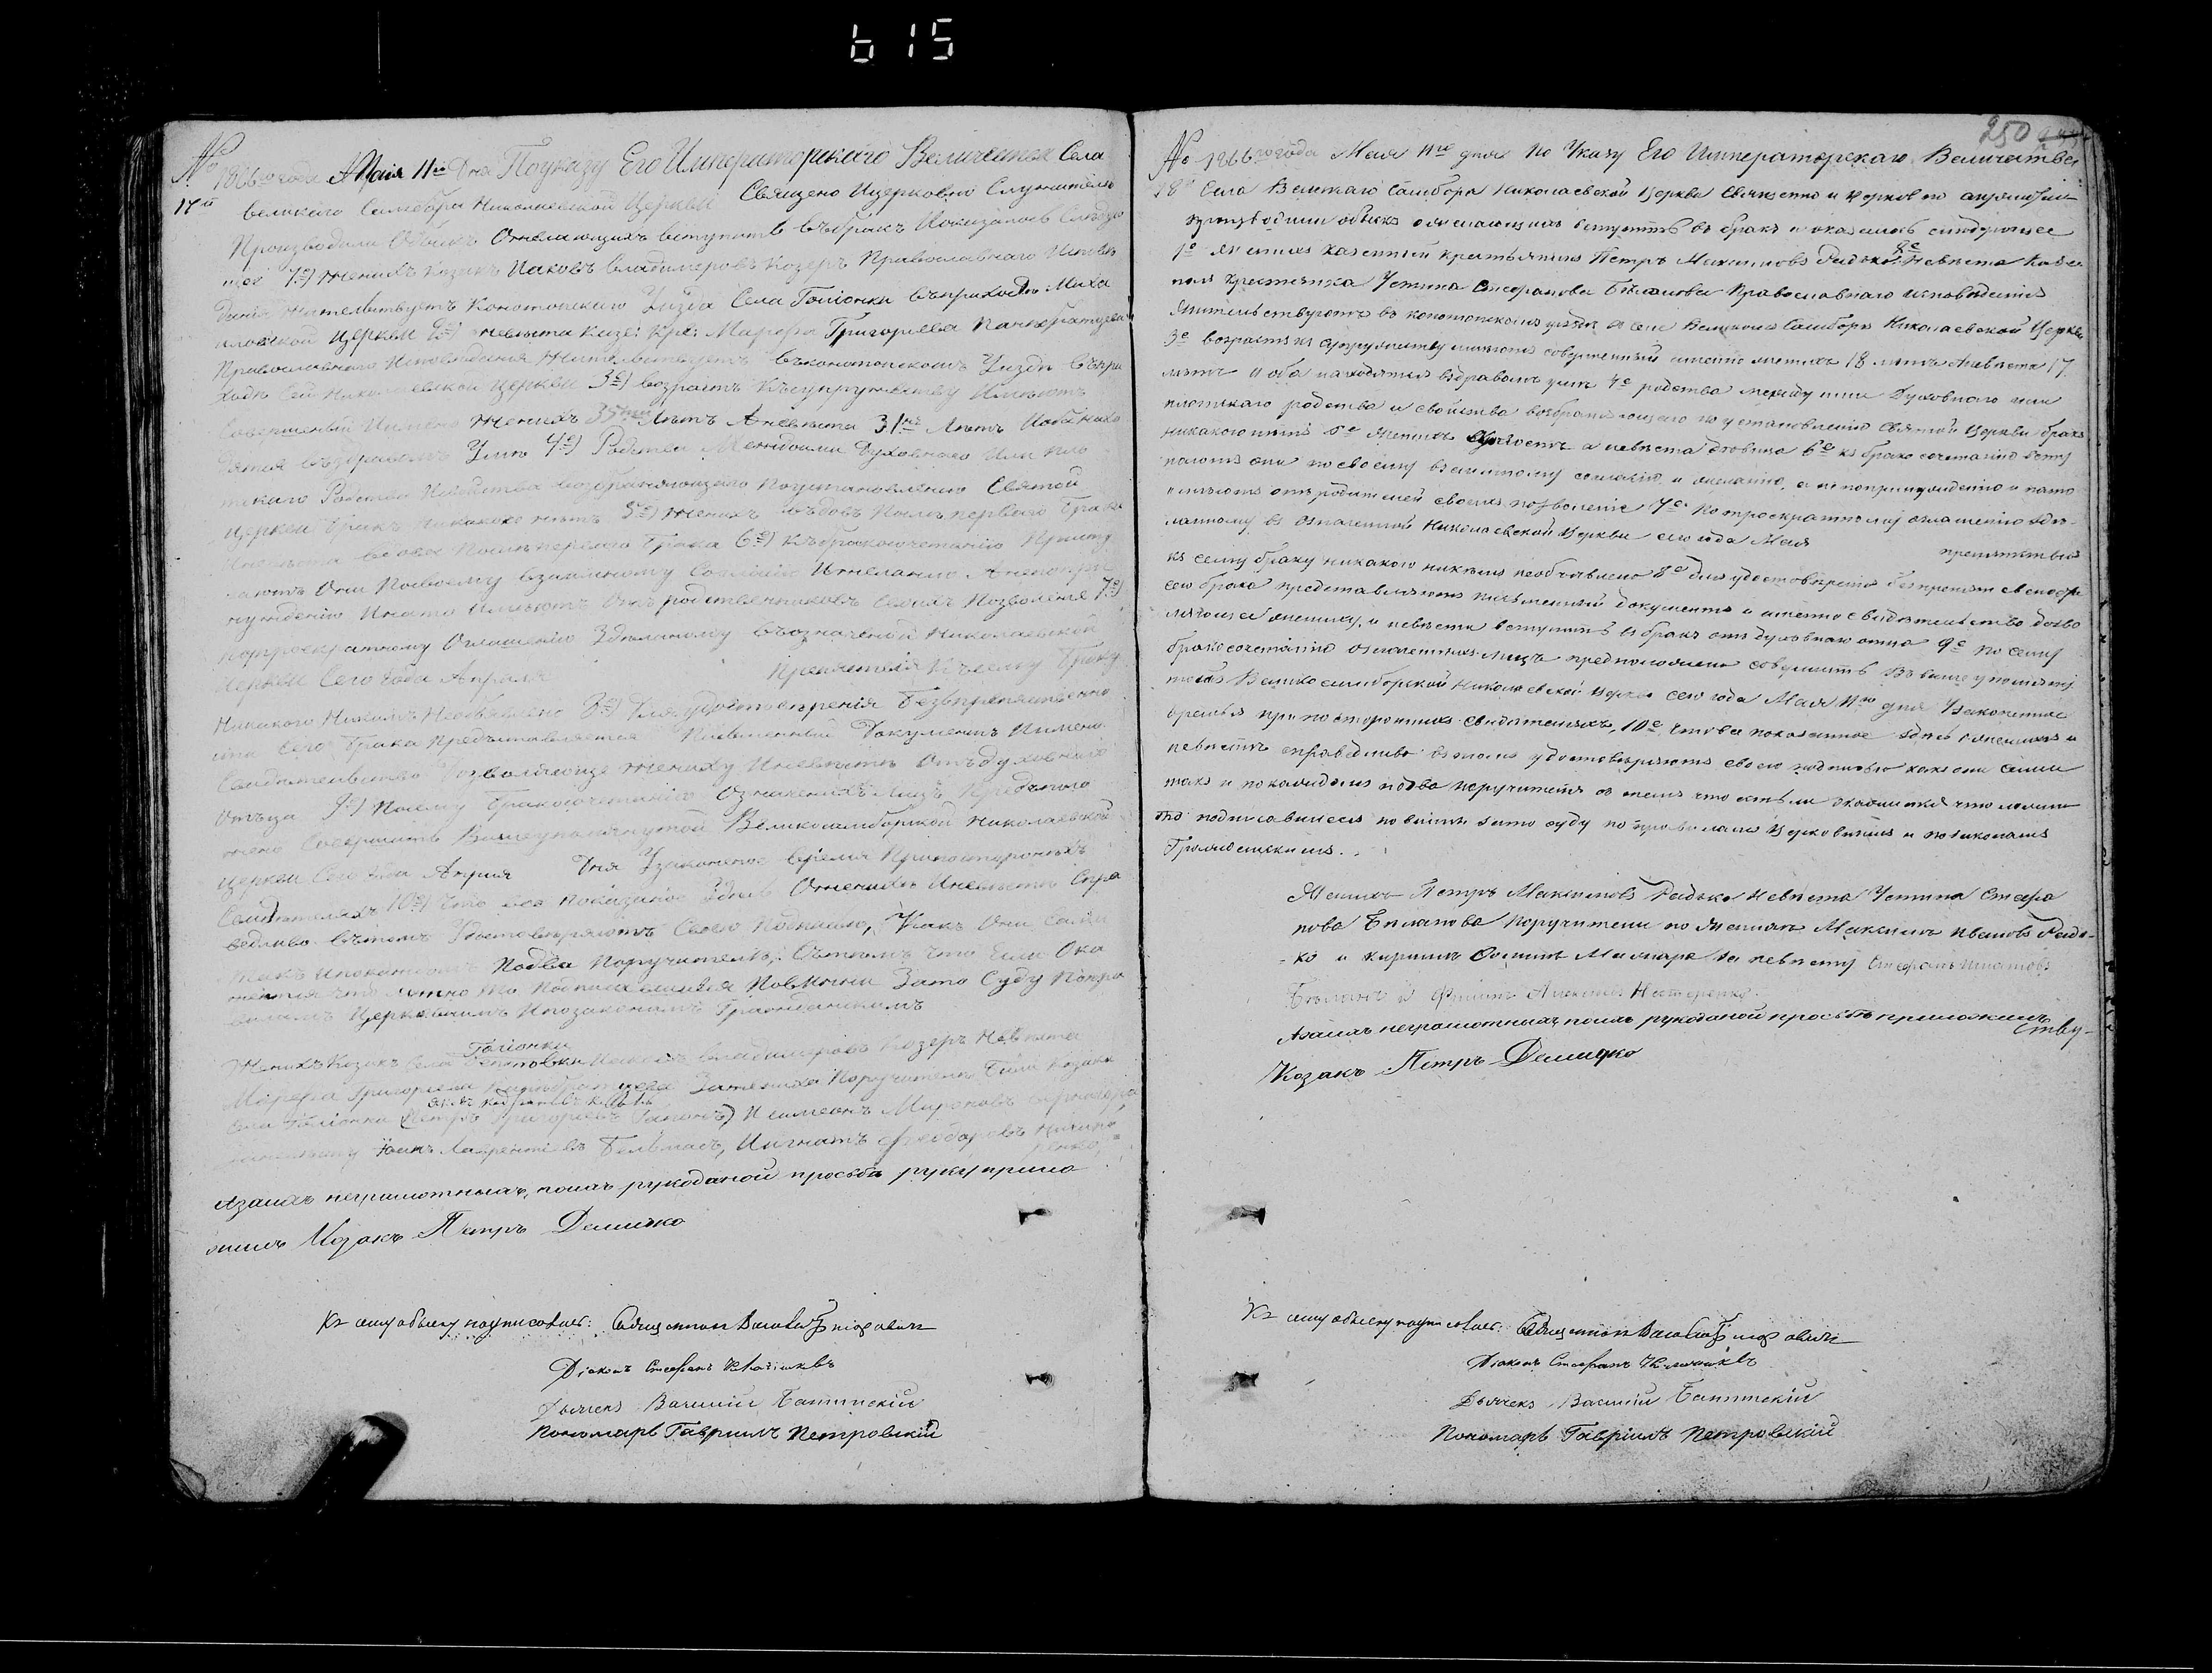 615
№ 1866го года Маія 11го Дня Поуказу Его Императорскаго Величества Села
17й великаго Самбора Николаевской Церкви Священо Ицерковно Служители
Производили Обыск Ожелающихъ вступить въбракъ Иоказалось Следую
щее 1е) женихъ козакъ Иаковъ Владимеровъ Козеръ Православнаго Испове
данія жительствуетъ Конотопскаго Уизда Села Гоііонки въприходе Миха
иловской Церкви 2е) невеста казе: кре: Марфа Григориева
Православнаго Исповедания жительствуетъ въконотопскомъ Уизде въпри
ходе Сей Никол евской Церкви 3е) возрастъ Късупружеству Имеютъ
Совершеный Имено женихъ 35ти Летъ Аневеста 31го Летъ Иоба нахо
дятся въздравомъ Уме 4е) Родства Междоими Духовнаго Или пло
тскаго Родства Исвойства возбраняющаго Поустановлению Святой
Церкви бракъ Никакого нетъ 5е) женихъ въдовъ После первого Брака
Иневеста вдова После первого Брака 6е) Къбракосочетанию Присту
паютъ Они Посвоему взаимному Согласию Ижеланию Анепопри
нуждению Инато Имеютъ Отъ родственниковъ Своихъ Позволение 7е)
Потроекратному Оглашению Зделаному въозначеной Николаевской
Церкви Сего года Апреля Препятствія Къ сему Браку
Никакого Никемъ Необявлено 8е) Для удостоверенія Безпрепятственно
сти Сего Брака Предъставляется Писменный Документъ Имено
Свидетельство Дозволяюще жениху Иневесте Отъ духовнаго
Отъца 9е) Посему Бракосочетанию Означеныхъ Лицъ Предполо
жено Совершить Вышеупомянутой Великосамборской Николаевской
Церкви Сего года Апреля Дня Узаконеное время Припостороныхъ
Свидетеляхъ 10е) Что все показаное Здесь Ожениха Иневесте Спра
ведливо въ томъ Удостоверяютъ Своею Подписью, Какъ Они Сами
такъ Ипокаждомъ Подва Поручителя, Стемъ что Если Ока
жется что ложно то Подписавшияся Повинни Зато Суду Попра
виламъ Церковнымъ Ипозаконамъ Гражданскимъ
Женихъ Козакъ Села Гоіонки Иаковъ Владимеровъ Козеръ Невеста
Марфа Григориева Зажениха Поручители Были Козаки
Села Гоіонки (Петръ Григориевъ) Исимеонъ Мироновъ
Лаврентіевъ Бельмасъ, Игнатъ Феодоровъ
Азанихъ неграмотныхъ, поихъ рукоданой просьбе руку прило
жилъ Козакъ Петръ Демидко
Къ сему обыску подписались: Священникъ Василій
Діаконъ Стефанъ
Дьячекъ Василий Батинскій
Пономарь Гавриилъ Петровскій
250
№ 1866го года Мая 11го дня По Указу Его Императорскаго Величества
18й Села Великаго Самбора Николаевской Церкви Священно и церковно служители
производили обыскъ о желающихъ вступить въ бракъ и оказалось следующее
1е Женихъ казенный крестьянинъ Петръ Максимовъ Радько 2е Невеста казен
ная крестьянка Устина Стефанова Биланова Православнаго исповедания
Жительствуютъ въ конотопскомъ уезде в селе Великомъ Самборе Николаевской Церкви
3е возрастъ къ супружеству имеютъ совершенный именно женихъ 18 летъ Аневеста 17
летъ и оба находятся въ здравомъ уме 4е родства между ими Духовнаго или
плотскаго родства и свойства возбраняющаго по установлению Святой Церкви бракъ
никакого нетъ 5е Женихъ холостъ а невеста девица 6е къ бракосочетанию всту
паютъ они по своему взаимному согласию и желанию, а не попринуждению и нато
имеютъ отъ родителей своихъ позволение 7е По троекратному оглашению зде
ланному въ означенной Николаевской Церкви сего года Мая препятствія
къ сему браку никакого никемъ необъявлено 8е для удостоверения безпрепятственности
сего брака представляютъ письменный документъ и именно свидетельство дозво
ляющее жениху и невесте вступить въ бракъ отъ духовнаго отца 9е по сему
бракосочетанию означенныхъ лицъ предположено совершить въ вышеупомяну
той Великосамборской Николаевской Церкви сего года Мая 11го дня Узаконенное
время при постороннихъ свидетеляхъ, 10е что все показанное здесь о женихе и
невесте справедливо въ томъ удостоверяютъ своею подписью какъ они сами
такъ и по каждомъ подва поручителя со темъ что естьли окажется что ложно
то подписавшиеся повинны зато суду по правиламъ Церковнымъ и позаконамъ
Гражданскимъ.
Женихъ Петръ Максимовъ Радько Невеста Устина Стефа
нова Биланова Поручители по Женихе Максимъ Ивановъ Радь-
-ко и Кириллъ Фоминъ Мисюра по невесте Стефанъ Игнатовъ
Биланъ и Филипъ Алексеевъ Нестеренко.
Азанихъ неграмотныхъ поихъ рукоданой просьбе приложилъ
Козакъ Петръ Демидко
Къ сему обыску подписались: Священникъ Василій
Діаконъ Стефанъ
Дьячекъ Василий Батинскій
Пономарь Гавріилъ Петровскій